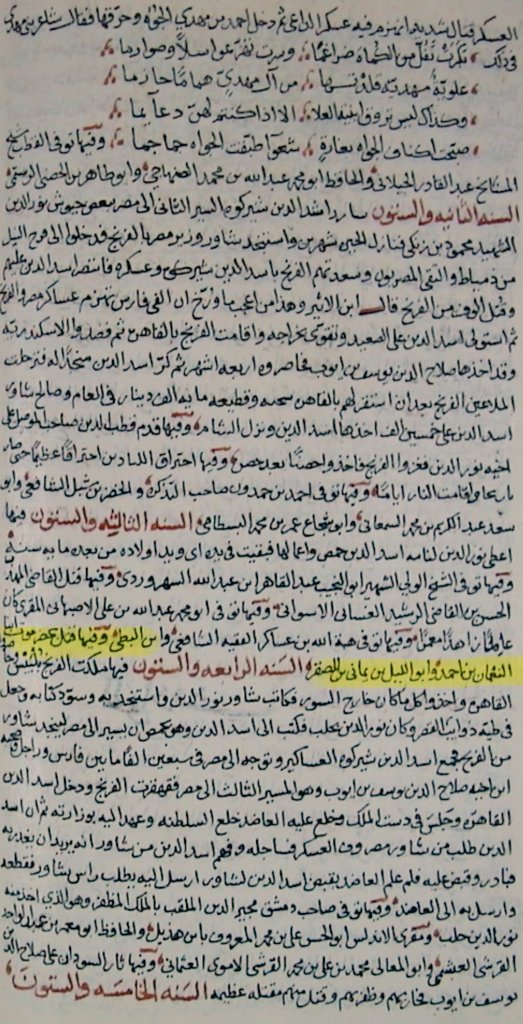 العسكر قتال شديد ما انهزم فيه عسكر الداعي ثم دخل احمد بن مهدي الجواه وحرقها فقال شاعر بني مهدي
في ذلك بكرت تقل من الكماة ضراغما
علوية مهدية
من آل مهدي هماما حازما
وكذاك ليس
الا اذا كنتم لهن دعايما
صبحت اكناف الجواه بغارة شعوا طبقت الجواه جماجما وفيها توفي القطب شيخ
المشايخ عبد القادر الجيلاني والحافظ ابو محمد عبد الله بن محمد الصنهاجي وابو طاهر بن الحصني الرستمي
السنه الثانيه والستون سار اسد الدين شيركوه المسير الثاني الى مصر بعض جيوش نور الدين
الشهيد محمود بن زنكي فنازل الجيزه شهرين واستنجد شاور وزير مصر بالفرنج فدخلوا الى مرج النيل
من دمياط والتقى المصريون ومعهم الفرنج باسد الدين شيركوه وعسكره فانتصر اسد الدين عليهم
وقتل الوف من الفرنج قال ابن الاثير وهذا من اعجب ما ورخ ان الفي فارس تهزم عساكر مصر والفرنج
ثم استولى اسد الدين على الصعيد وتقوى بخراجه واقامت الفرنج بالقاهره ثم قصدوا الاسكندريه
وقد اخذها صلاح الدين يوسف بن ايوب فحاصروه اربعه اشهر ثم كر اسد الدين منجدا له فترحلت
الملاعين الفرنج بعد ان استقر لهم بالقاهره شحنه وقطيعه مايه الف دينار في العام وصالح شاور
اسد الدين على خمسين الف اخذها اسد الدين ونزل الشام وفيها قدم قطب الدين صاحب الموصل على
اخيه نور الدين فغزوا الفرنج فاخذوا حصنا بعد حصن وفيها احتراق اللبادين احتراقا عظيما حتى صار
تاريخا واقامت النار اياما وفيها توفي احمد بن حمدون صاحب التذكره والخضر بن شبل الشافعي وابو
سعد عبد الكريم بن محمد السمعاني وابو شجاع عمر بن محمد البسطامي السنه الثالثه والستون فيها
اعطى نور الدين لنامه اسد الدين حمص واعمالها فبقيت في يده اى ويد اولاده من بعده مايه سنه
وفيها توفي الشيخ الولي الشهير ابو النجيب عبد القاهر بن عبد الله السهروردي وفيها قتل القاضي المهذب
الحسن بن القاضي الرشيد الغساني الاسواني وفيها توفي ابو محمد عبد الله بن علي الاصبهاني المقري كان
عالما زاهدا معمرا وفيها توفي هبة الله بن عساكر الفقيه الشافعي وابن البطي وفيها قتل بحضرموت
النعمان بن احمد وابو الليل بن يماني بن الصقر السنه الرابعه والستون فيها ملكت الفرنج بلبيس
القاهره واخذوا كل ما كان خارج السور فكاتب شاور نور الدين واستنجد به وسود كتابه وجعل
في طيه ذوايب القصر وكان نور الدين بحلب فكتب الى اسد الدين وهو بحمص ان يسير الى مصر لينجد شاور
من الفرنج فجمع اسد الدين شيركوه العساكر وتوجه الى مصر في سبعين الفا ما بين فارس وراجل
ابن اخيه صلاح الدين يوسف بن ايوب وهو المسير الثالث الى مصر فقهقرت الفرنج ودخل اسد الدين
القاهره وجلس في دست الملك وخلع عليه العاضد خلع السلطنه وعهد اليه بوزارته ثم ان اسد
الدين طلب من شاور مصروف العسكر فماطله وفهم اسد الدين من شاور انه يريد ان يغدر به
فبادر وقبض عليه فلم علم العاضد بقبض اسد الدين لشاور ارسل اليه يطلب راس شاور فقطعه
وارسل به الى العاضد وفيها توفي صاحب دمشق مجير الدين الملقب بالملك المظفر وهو الذي اخذ منه
نور الدين حلب ومقري الاندلس ابو الحسن علي بن محمد المعروف بابن هذيل والحافظ ابو معمر بن عبد الواحد
القرشي العبشمي وابو المعالي محمد بن علي بن محمد القرشي الاموي العثماني وفيها ثار السودان على صلاح الدين
يوسف بن ايوب فحاربهم وظفر بهم وقتل منهم مقتله عظيمه السنه الخامسه والستون